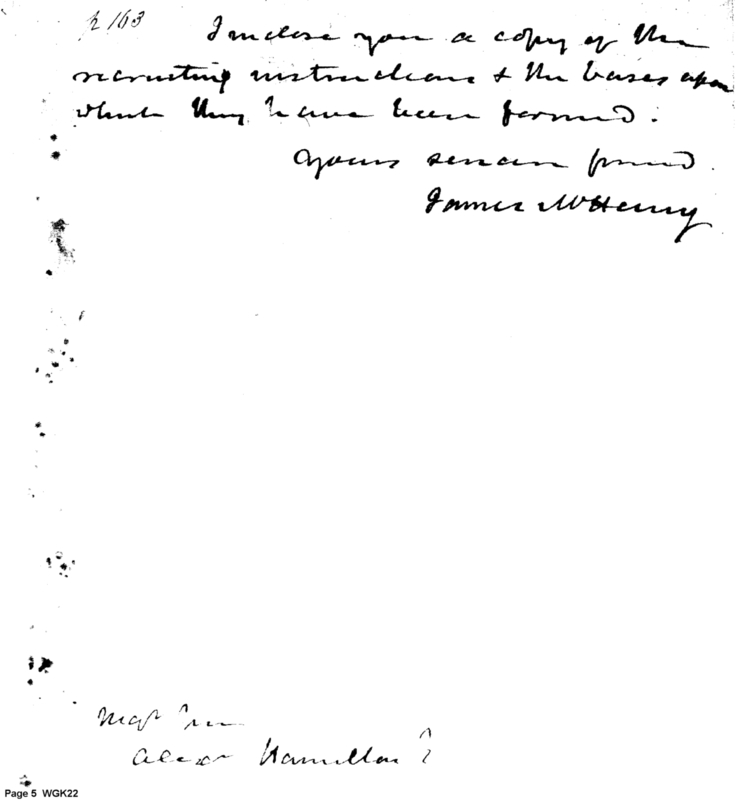 p 163
I inclose you a copy of the
recruiting instructions & the bases upon
which they have been formed.
Yours sincere friend
James McHenry
Majr Gen
Alexr Hamilton
Page 5 WGK22